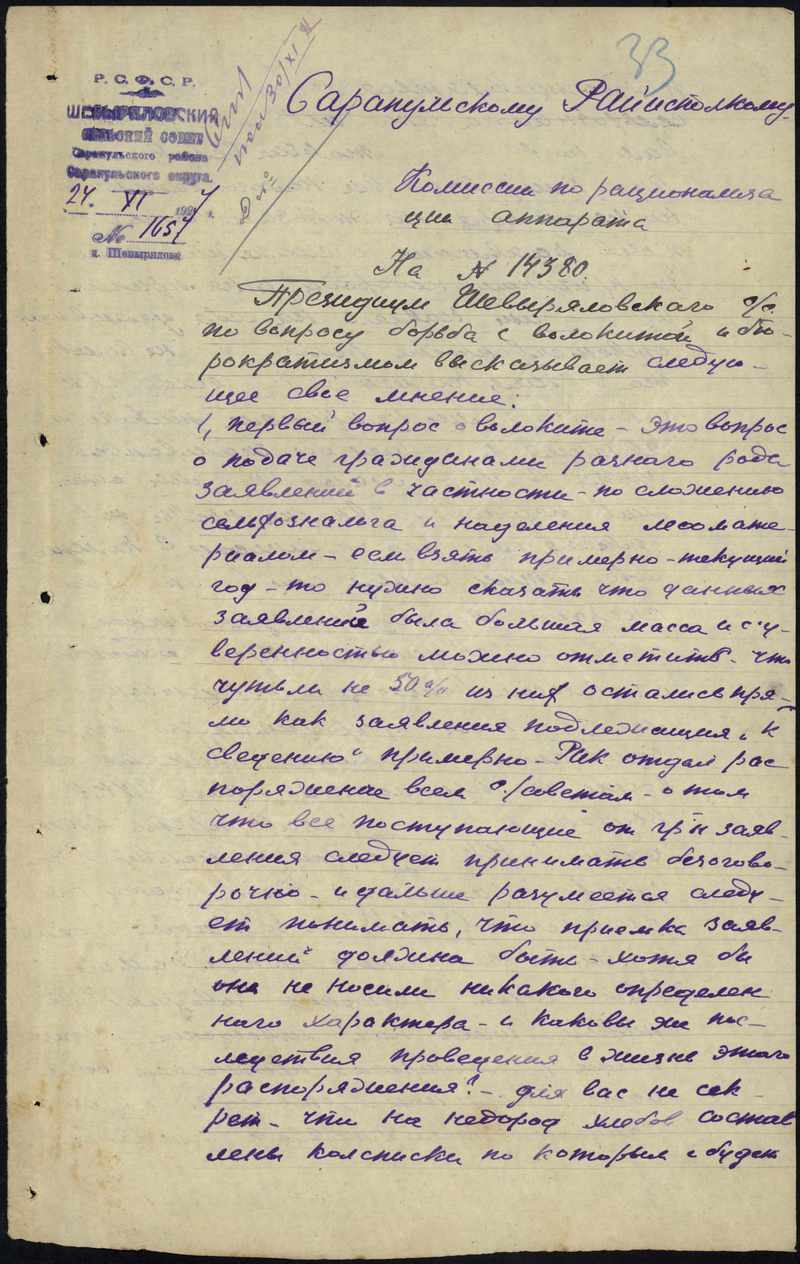 33
Р. С. Ф. С. Р.
ШЕВЫРЯЛОВСКИЙ
СЕЛЬСКИЙ СОВЕТ
Сарапульского района
Сарапульского округа.
24. XI 1927 г.
№ 1657
д. Шевырялово
30/XI
Сарапульскому Райисполкому
Комиссии по рационализа
ции аппарата
На № 14380.
Президиум Шевыряловского с/с.
по вопросу борьба с волокитой и бю-
рократизмом высказывает следую-
щее свое мнение:
1, первый вопрос о волоките - это вопрос
о подаче гражданами разного рода
заявлений в частности - по сложению
сельхозналога и наделения лесомате-
риалом - если взять примерно - текущий
год - то нужно сказать что данных
заявлений была большая масса и с у-
веренностью можно отметить - что
чутьли не 50% из них остались пря-
мо как заявления подлежащия „к
сведению" примерно - Рик отдал рас
поряжение всем с/советам - о том
что все поступающие от гр'н заяв-
ления следует принимать безогово-
рочно - и дальше разумеется следу-
ет понимать, что приемка заяв-
лений должна быть - хотя бы
оне не носили никакого определен
ного характера - и каковы же пос-
ледствия проведения в жизнь этого
распоряжения? - для вас не сек-
рет - что на недород хлебов состав
лены колсписки по которым и будет